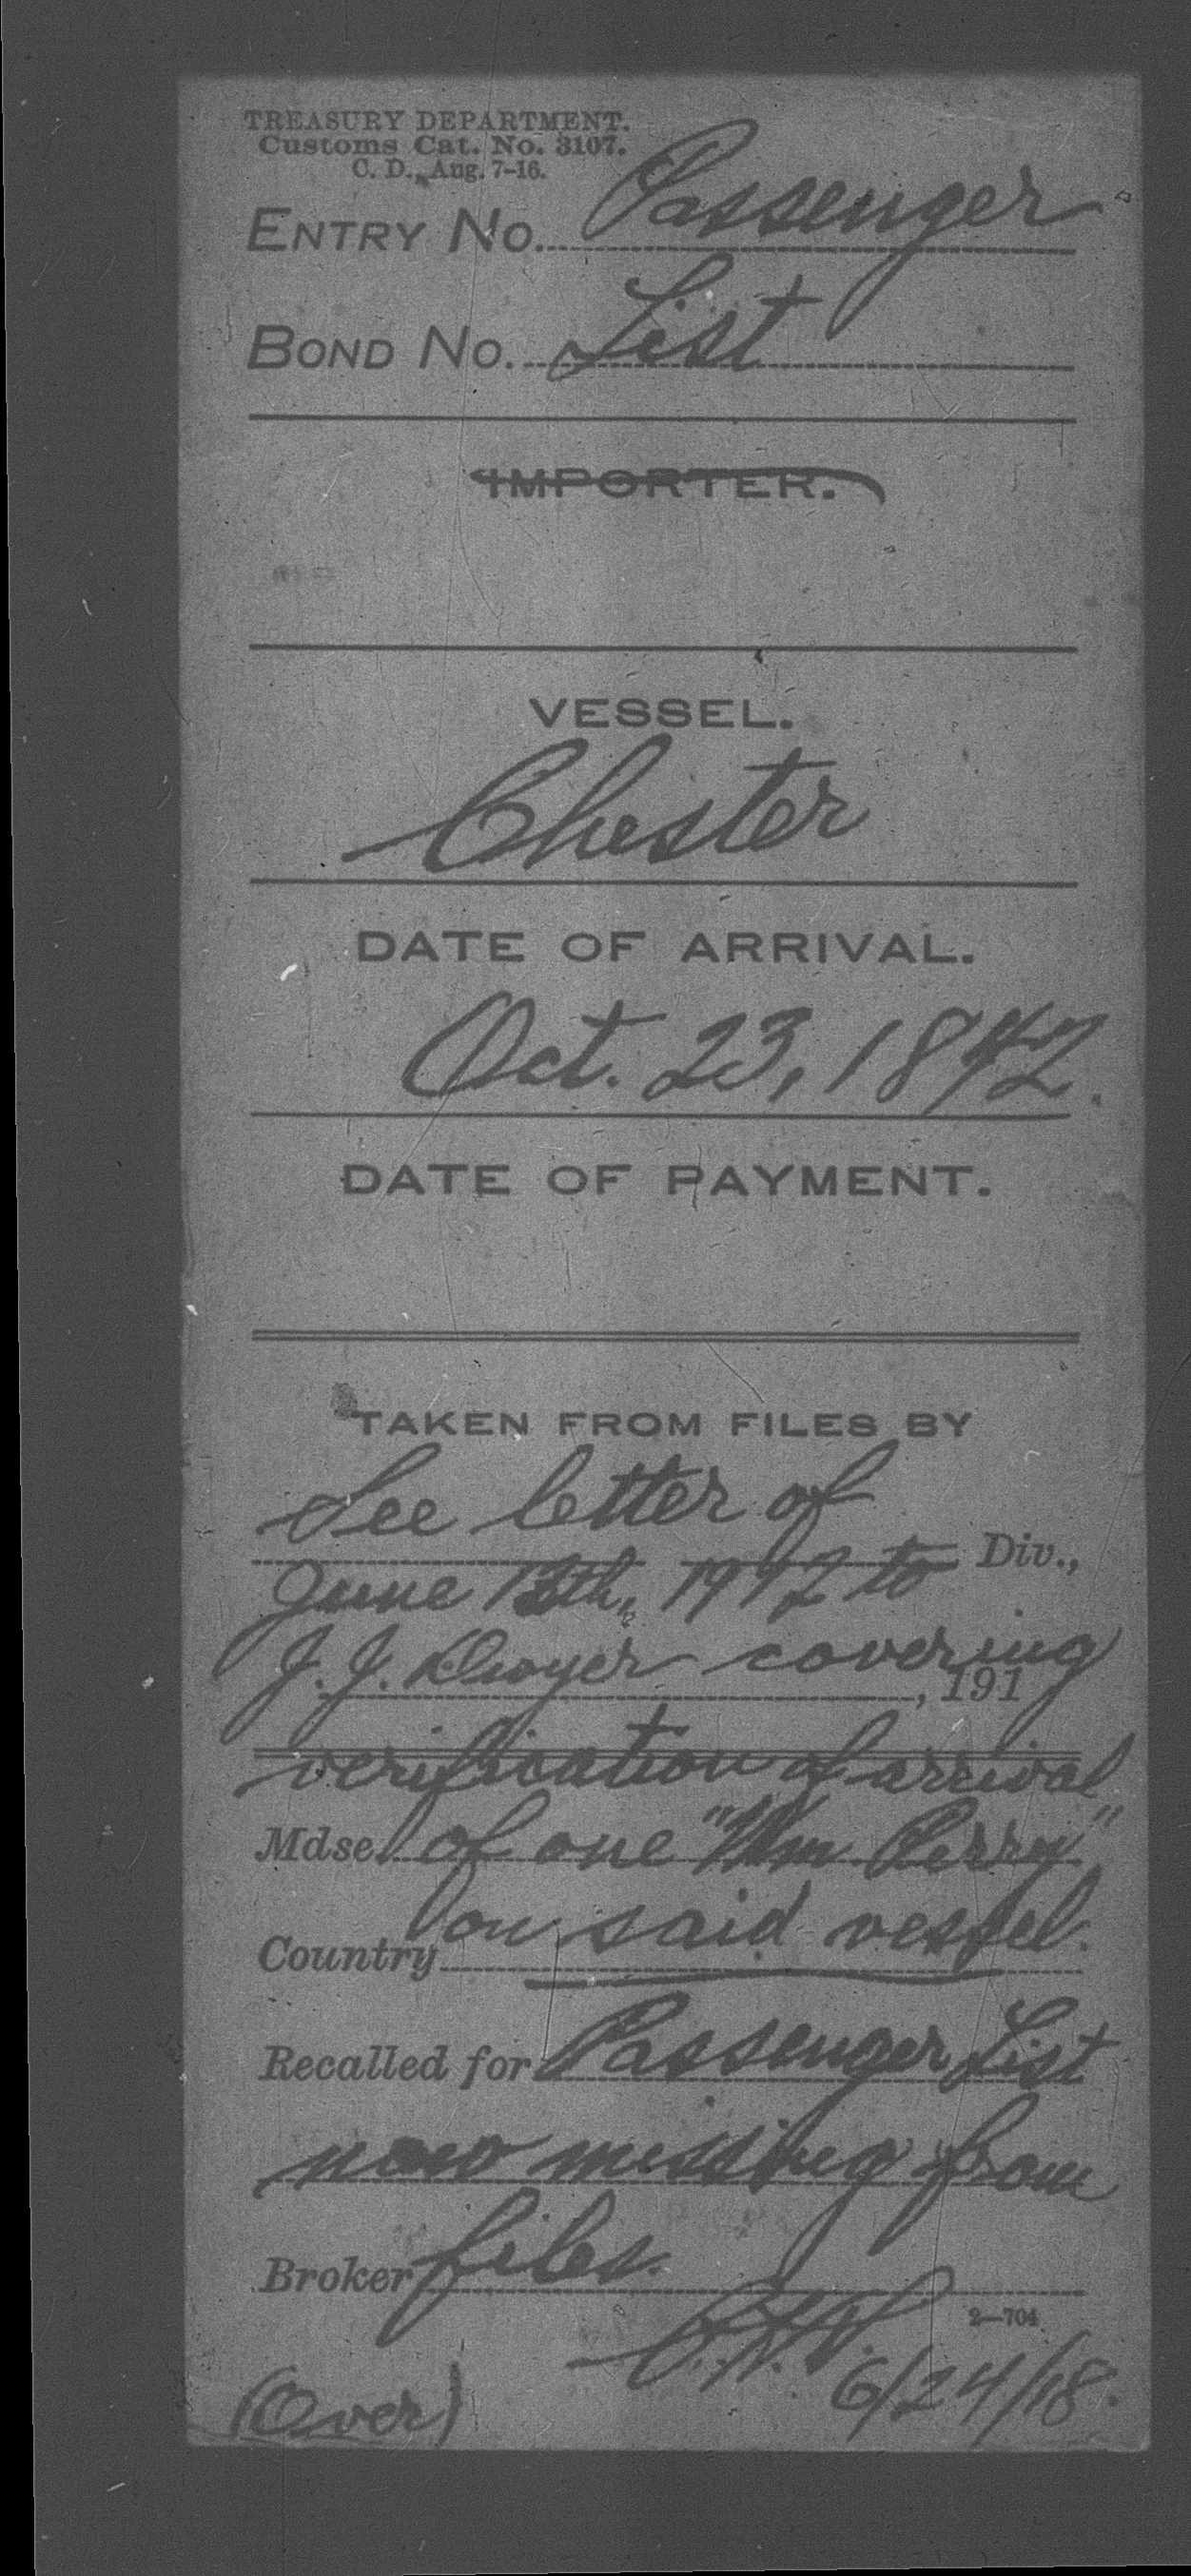 TREASURY DEPARTMENT.
Customs Cat. No. 3107.
C. D., Aug. 7-16.
ENTRY No. Passenger
BOND No. List
IMPORTER.
VESSEL.
Chester
DATE OF ARRIVAL.
Oct. 23, 1842.
DATE OF PAYMENT.
TAKEN FROM FILES BY
See letter of
Div.,
June 13th, 1912 to
J. J. Dwyer covering
, 191
verification of arrival
Mdse. of one "Wm Perry"
on said vessel.
Country
Recalled for Passenger List
now missing from
Broker files.
2—704
6/24/18.
(Over)